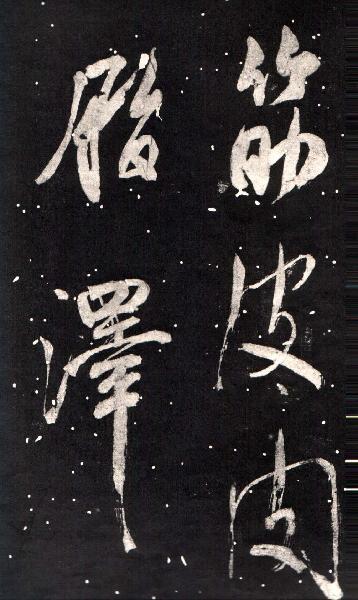 筋皮肉
脂澤